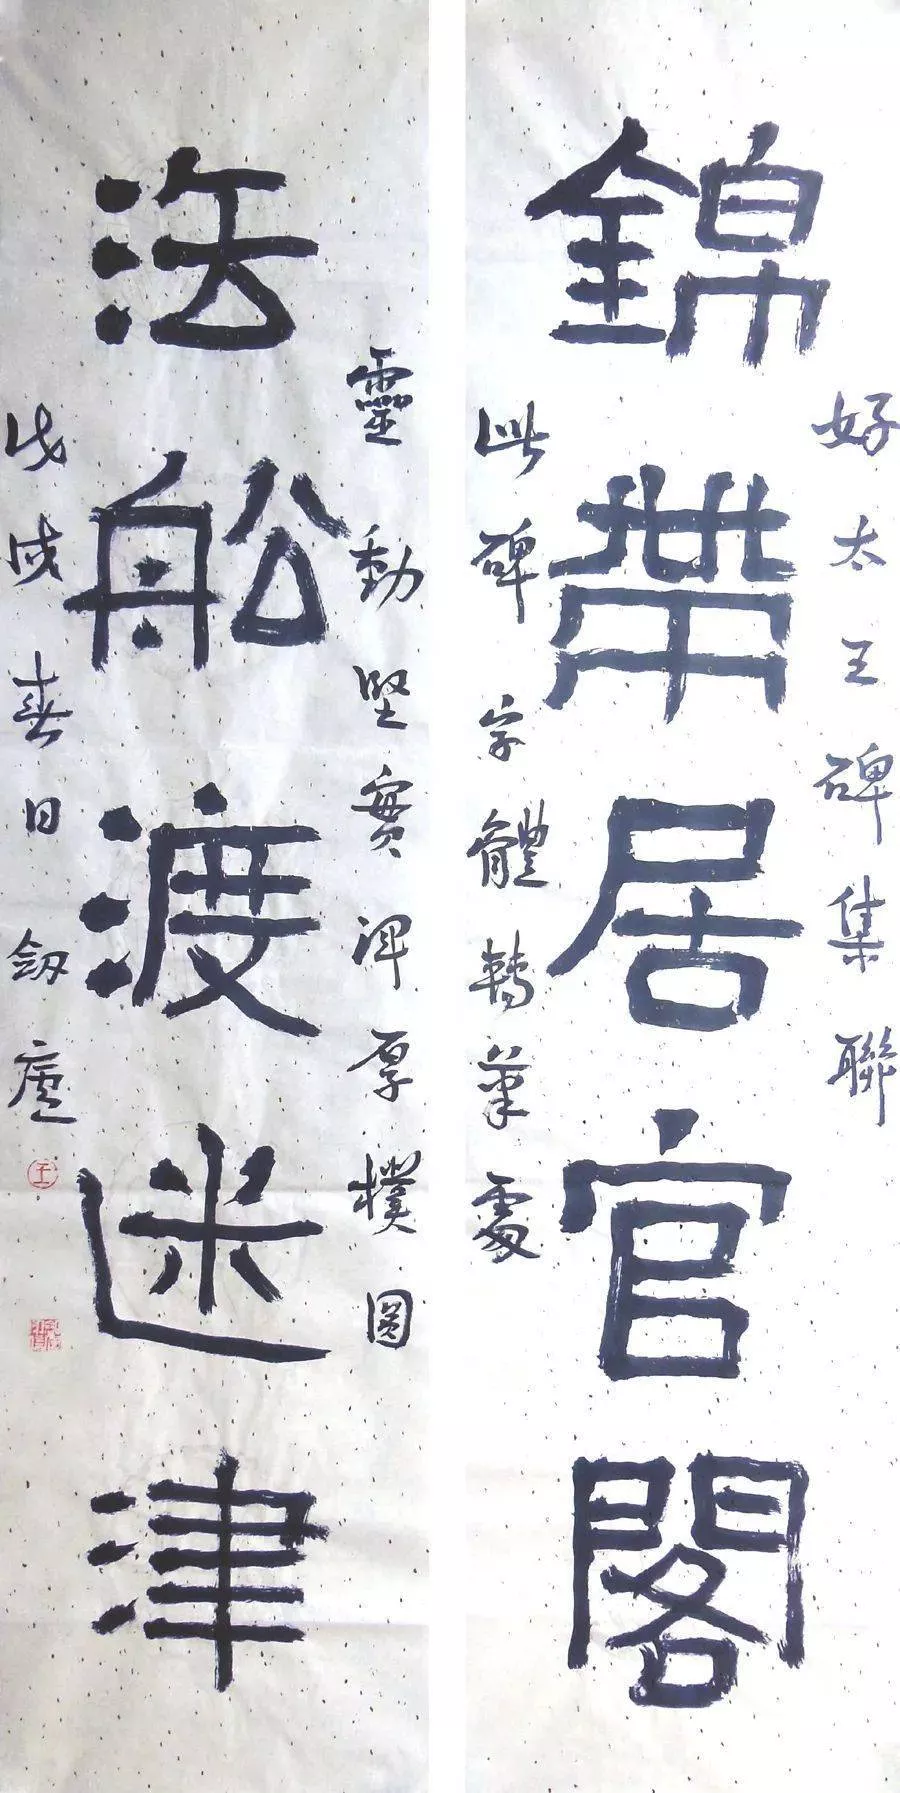 錦帶居官閣
好太王碑集聯
此碑字體轉筆處
法船渡迷津
靈動堅實渾厚樸圓
戊戌春日劔廬